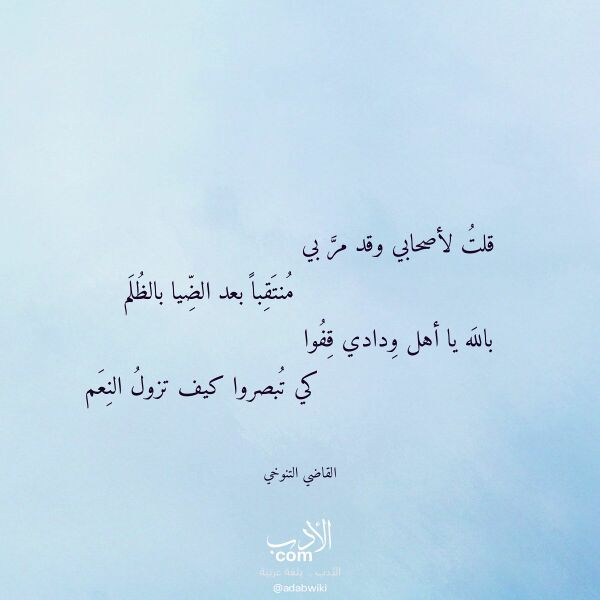 قلتُ لأصحابي وقد مرَّ بي
مُنتَقِباً بعد الضِّيا بالظُلَم
بالله يا أهل وِدادي قِفُوا
كي تُبصروا كيف تزولُ النِعَم
القاضي التنوخي
الأدب
com
الأدب .. بلغة عربية
@adabwiki